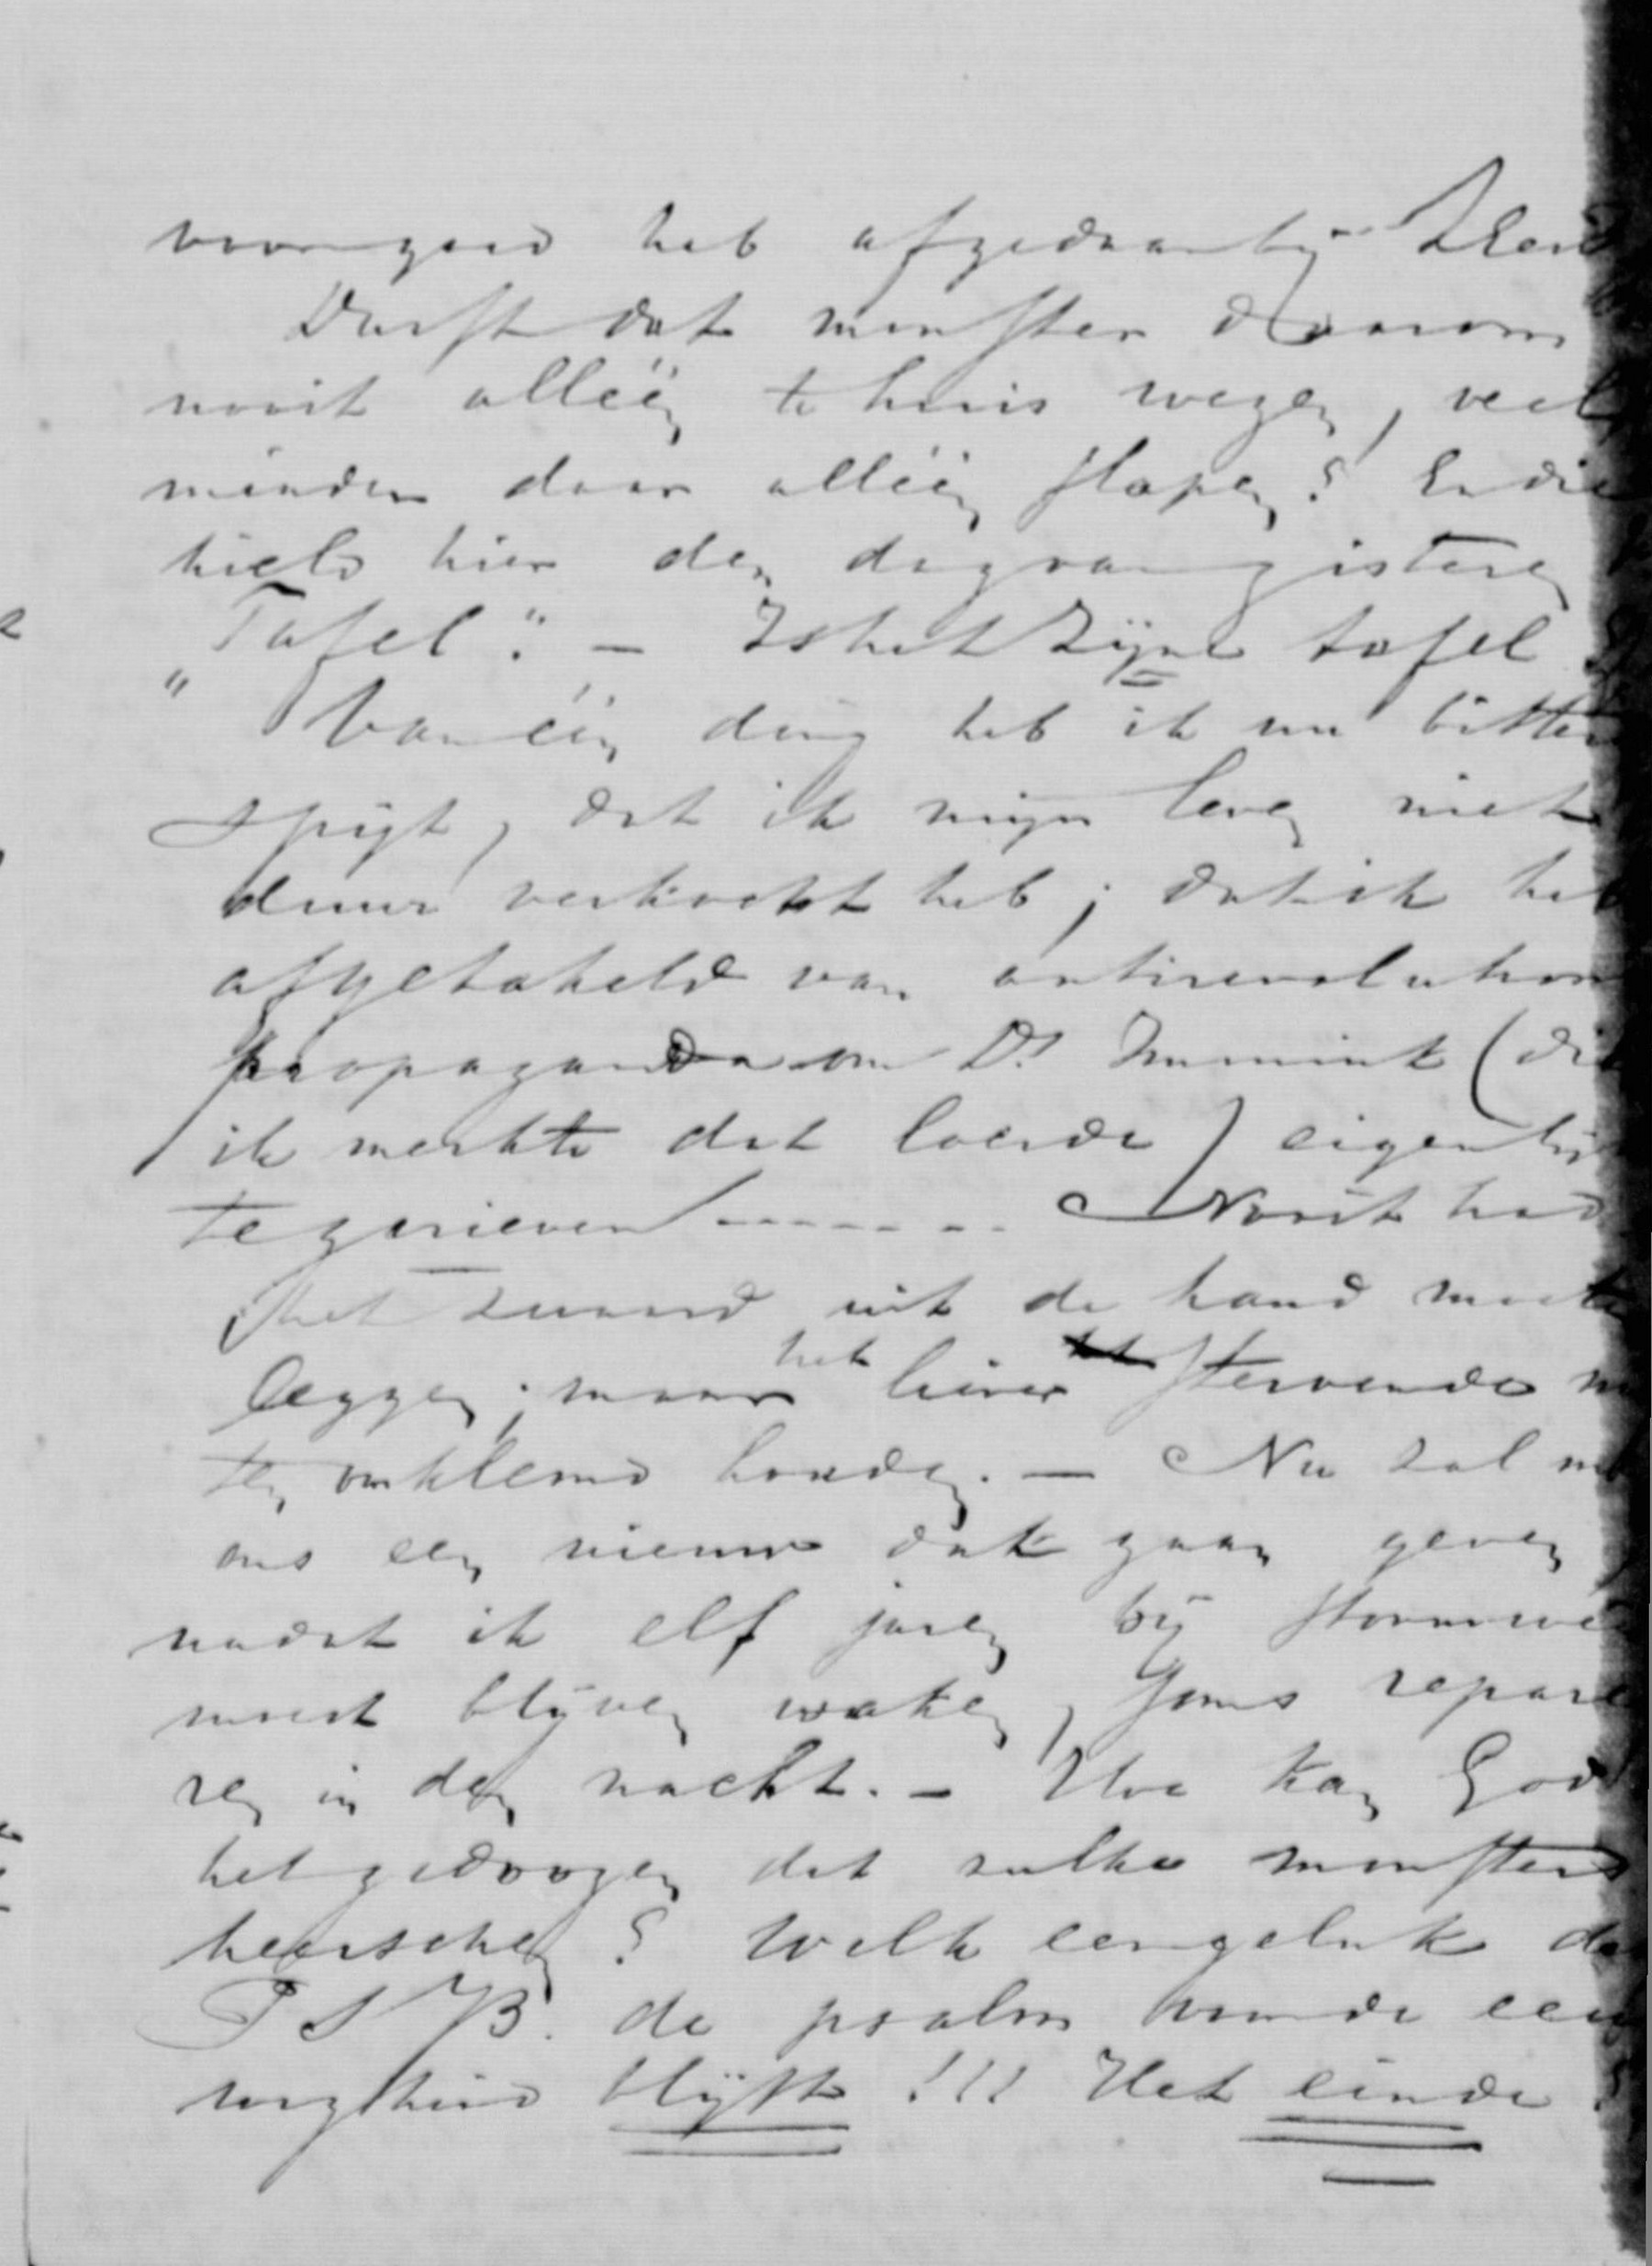 voorgoed heb afgedaan bij
Durft dat monster daarom
nooit alléén te huis wezen, veel
minder daar alléén slapen? En die
hield hier den dag van gisteren
"Tafel". — Is het Zijne tafel
Van één ding heb ik nu bitter
spijt, dat ik mijn leven niet
duur verkocht heb; dat ik heb
afgetakeld van antirevolution
propaganda om Ds. Immink (die
ik merkte dat loerde) eigenlijk
te gerieven ------- Nooit had
het zwaard uit de hand moeten
leggen; maar het liever stervende m
ten omklemd houden. — Nu zal m
ons een nieuw dak gaan geven
nadat ik elf jaren bij stormwe
moest blijven waken, soms repare
ren in den nacht. — Hoe kan God
het gedoogen dat zulke monsters
heerschen? Welk een geluk da
PS 73. de psalm
blijft!!! Het einde